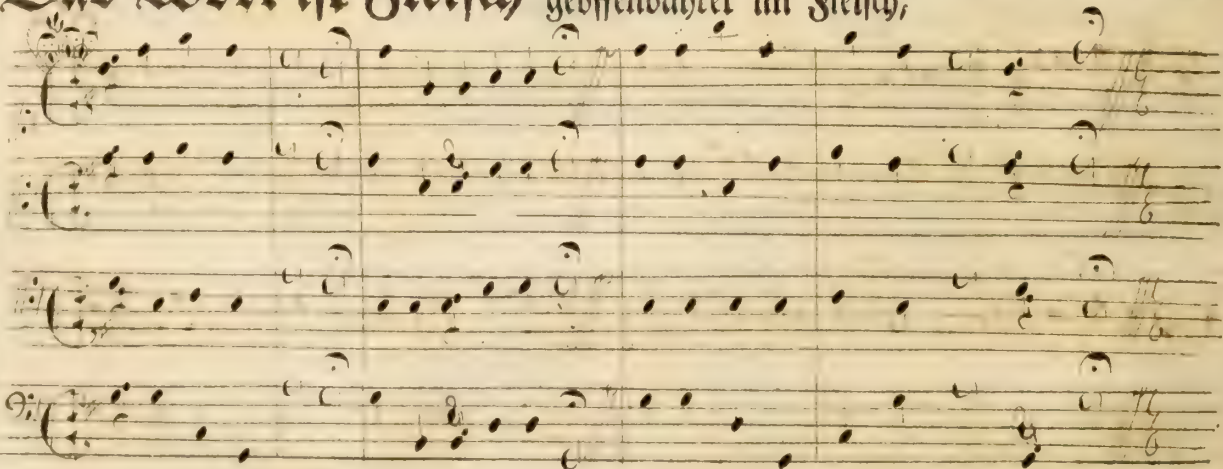 Das Wort ist Fleisch geoffenbahret im Fleisch,